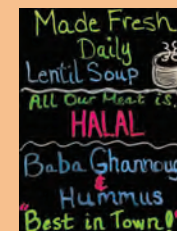 Made Fresh
Daily
Lentil Soup
All Our Meat is.
HALAL
Baba Ghannoug
&
Hummus
"Best in Town!"